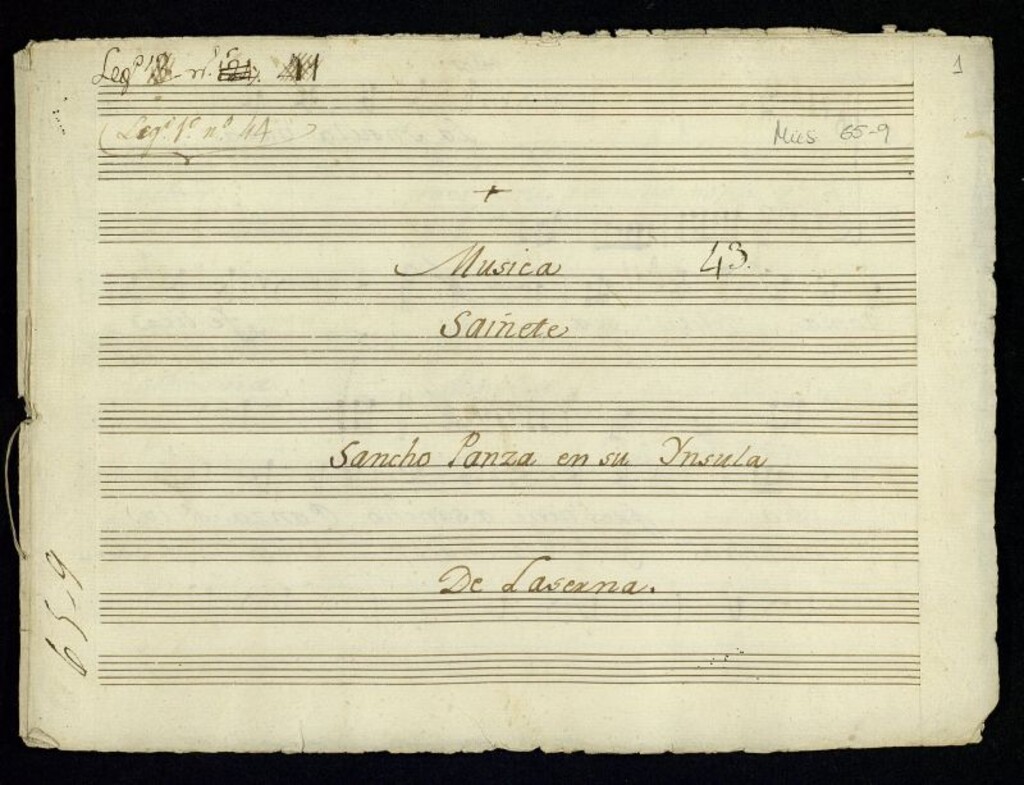 Leg.º 18 n.º 11
1
Leg.º 1.º n.º 44
Mus 65-9
+
Musica 43.
Sainete
Sancho Panza en su Ynsula
De Laserna.
65-9